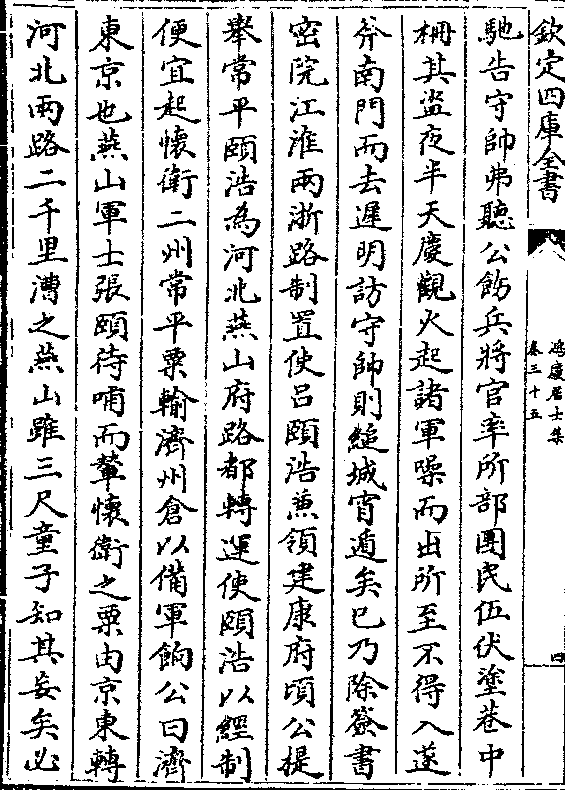 欽定四庫全書
鴻慶居士集
卷三十五
四
馳告守帥弗聽公飭兵將官率所部團民伍伏塗巷中
柵其盗夜半天慶觀火起諸軍噪而出所至不得入遂
斧南門而去遲明訪守帥則縋城宵遁矣已乃除簽書
密院江淮兩浙路制置使吕頤浩兼領建康府頃公提
舉常平頤浩為河北燕山府路都轉運使頤浩以經制
便宜起懷衛二州常平粟輸濟州倉以備軍餉公曰濟
東京也燕山軍士張頤待哺而輦懷衛之粟由京東轉
河北兩路二千里漕之燕山雖三尺童子知其妄矣必